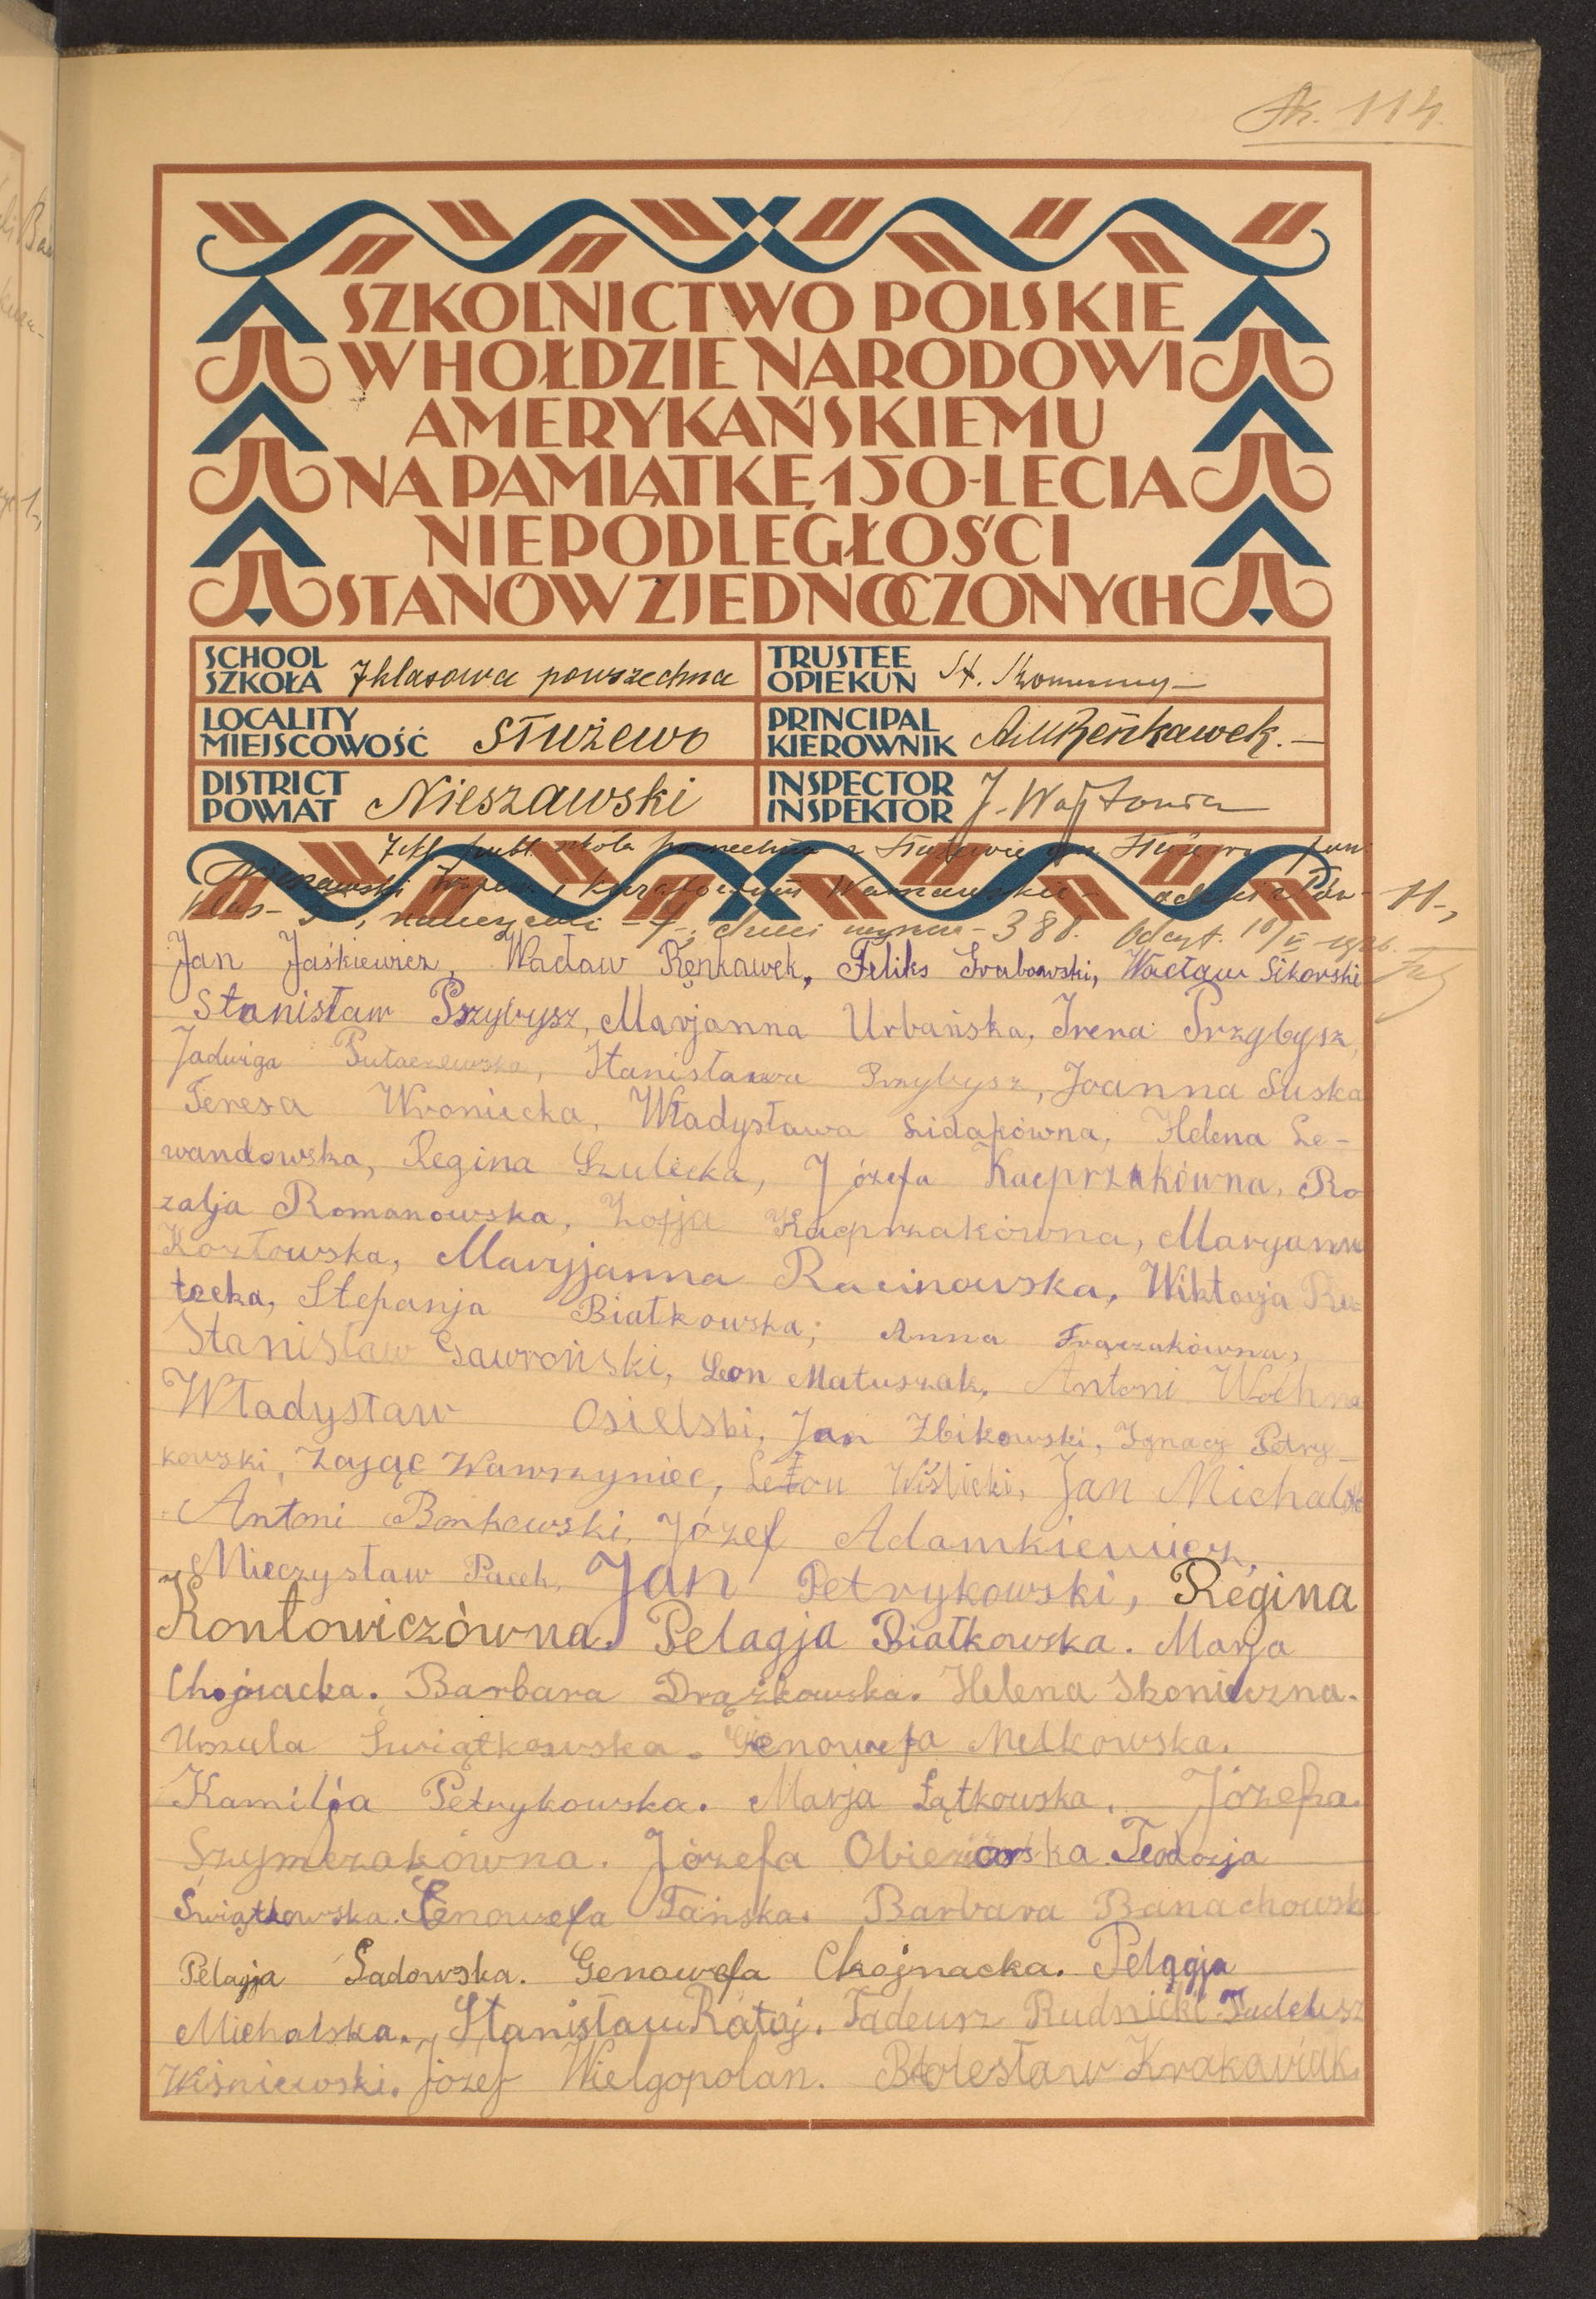 114.
SZKOLNICTWO POLSKIE
W HOŁDZIE NARODOWI
AMERYKAŃSKIEMU
NA PAMIĄTKĘ 150-LECIA
NIEPODLEGŁOŚCI
STANÓW ZJEDNOCZONYCH
SCHOOL SZKOŁA 7 klasowa powszechna
TRUSTEE OPIEKUN St.
LOCALITY MIEJSCOWOŚĆ Służewo
PRINCIPAL KIEROWNIK Renkawek.
DISTRICT POWIAT Nieszawski
INSPECTOR INSPEKTOR J.
7 kl. publ. szkoła powszechna w Służewie gm. Służewo pow.
Nieszawski 11,
klas nauczycieli - 7, dzieci 388.
Jan Jaśkiewicz, Wacław Renkawek, Feliks Grabowski, Wacław Sikorski
Stanisław Przybysz, Marjanna Urbańska, Irena Przybysz,
Jadwiga Stanisława Przybysz, Joanna Suska
Teresa Wroniecka, Władysława Helena Le-
wandowska, Regina Szulecka, Józefa Kacprzakówna, Ro
zalja Romanowska, Zofja Kacprzakówna, Maryanna
Kozłowska, Maryjanna Racinowska, Wiktorja Ru-
tecka, Stefanja Białkowska, Anna Frączakówna,
Stanisław Gawroński, Leon Matuszak, Antoni Wochna
Władysław Osielski, Jan Zbikowski, Ignacy Petry-
kowski, Zając Wawrzyniec, Wiślicki, Jan Michalski
Antoni Bonkowski, Józef Adamkiewicz,
Mieczysław Pacek, Jan Petrykowski, Regina
Kontowiczówna. Pelagja Białkowska. Marja
Chojnacka. Barbara Drążkowska. Helena Skonieczna.
Urszula Świątkowska. Genowefa Melkowska.
Kamilja Petrykowska. Marja Łątkowska. Józefa
Szymczakówna. Józefa Teodozja
Świątkowska. Genowefa Tańska. Barbara Banachowsk
Pelagja Sadowska. Genowefa Chojnacka. Pelagja
Michalska. Stanisław Rataj. Tadeusz Rudnicki. Tadeusz
Wiśniewski. józef Wielgopolan. Bolesław Krakowiak.